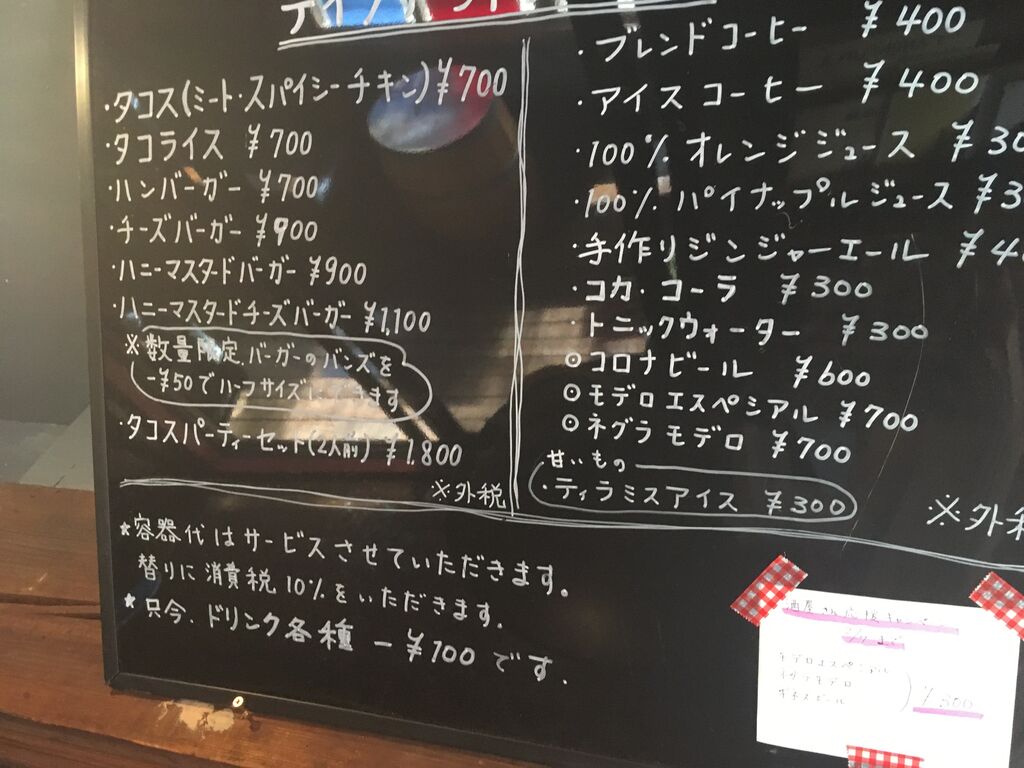 ・タコス(ミート・スパイシーチキン)¥700
・タコライス ¥700
・ハンバーガー ¥700
・チーズバーガー ¥900
・ハニーマスタードバーガー ¥900
・ハニーマスタードチーズバーガー ¥1,100
※数量限定 バーガーのバンズを
-¥50でハーフサイズにできます
・タコスパーティーセット(2人前) ¥1,800
※外税
・ブレンドコーヒー ¥400
・アイスコーヒー ¥400
・100% オレンジジュース ¥30
・100% パイナップルジュース ¥3
・手作りジンジャーエール ¥4
・コカ・コーラ ¥300
・トニックウォーター ¥300
⊙コロナビール ¥600
⊙モデロエスペシアル ¥700
⊙ネグラモデロ ¥700
甘いもの
・ティラミスアイス ¥300
※外税
★容器代はサービスさせていただきます。
替りに消費税10%をいただきます。
★只今、ドリンク各種 -¥100です.
酒屋さん応援キャンペーン
モデロエスペシアル
ネグラモデロ
¥500